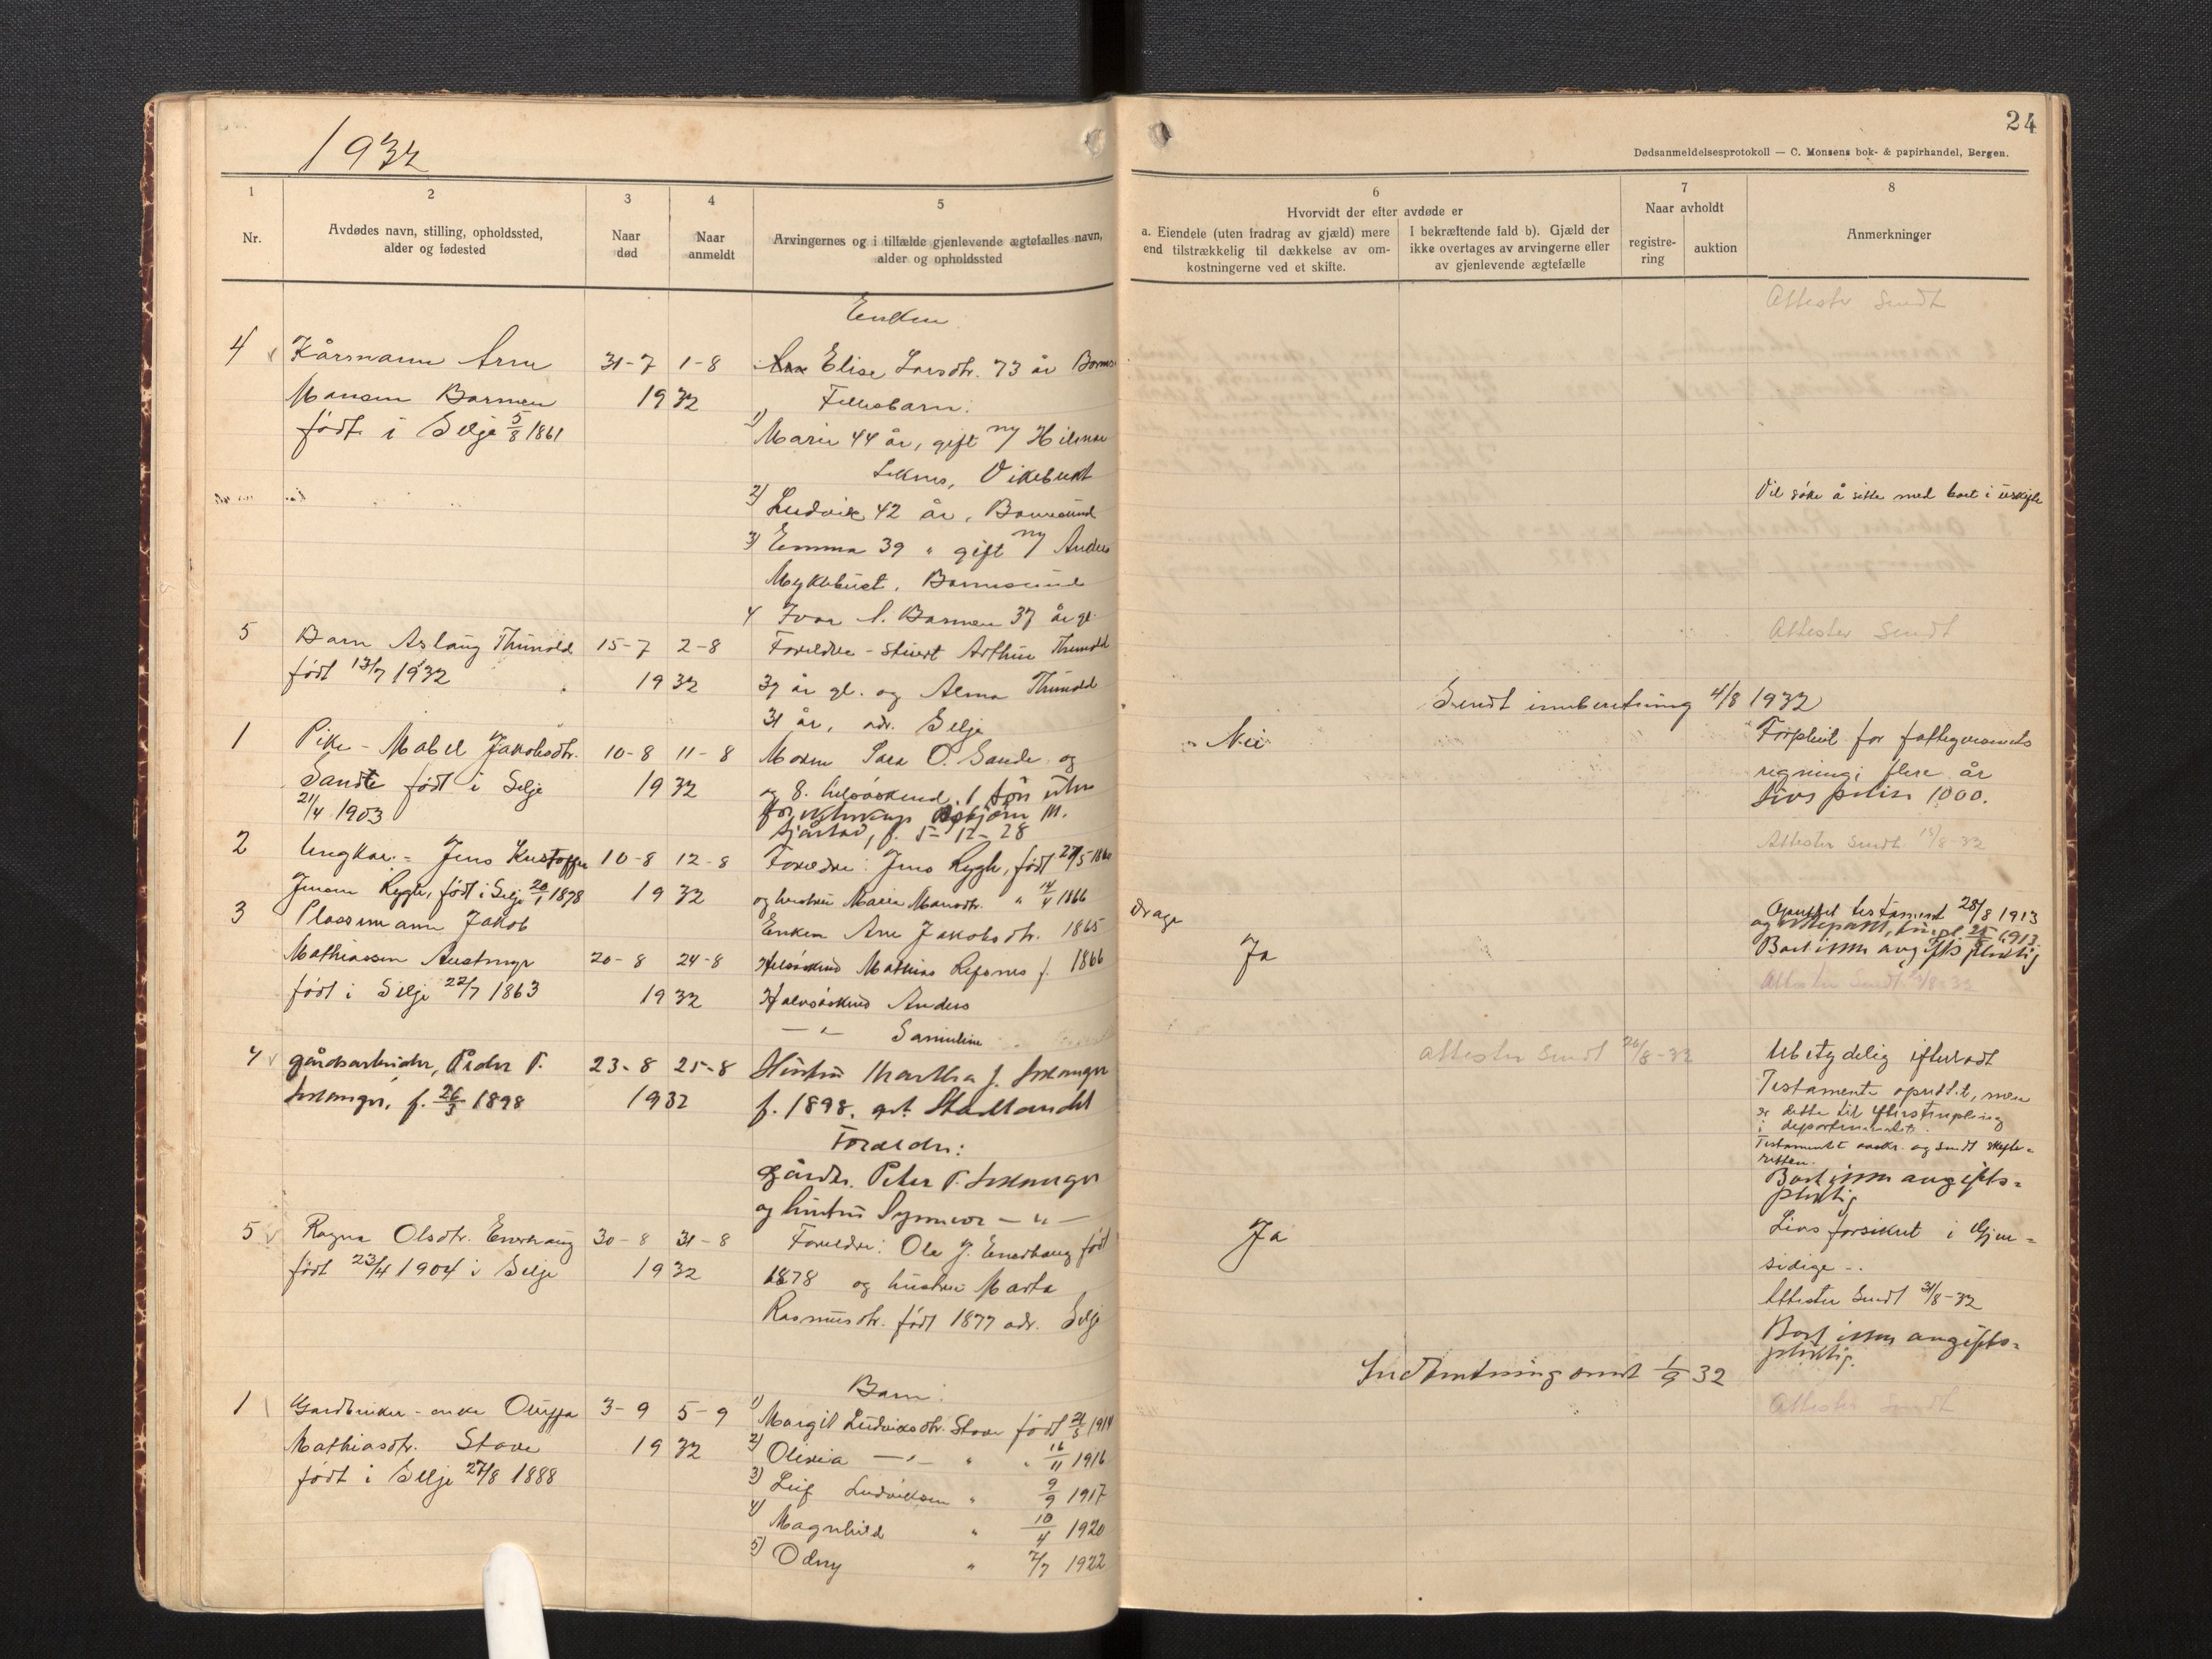 1932
24
Dødsanmeldelsesprotokoll — C. Monsens bok- & papirhandel, Bergen.
1
Nr.
2
Avdødes navn, stilling, opholdssted,
alder og fødested
3
Naar
død
4
Naar
anmeldt
5
Arvingernes og i tilfælde gjenlevende ægtefælles navn,
alder og opholdssted
6
Hvorvidt der efter avdøde er
a. Eiendele (uten fradrag av gjæld) mere
end tilstrækkelig til dækkelse av om-
kostningerne ved et skifte.
I bekræftende fald b). Gjæld der
ikke overtages av arvingerne eller
av gjenlevende ægtefælle
7
Naar avholdt
registre-
ring
auktion
8
Anmerkninger
Enken
Attester Sendt
4 Kårmann Arne 31-7 1-8 Elise Larsdtr. 73 år
Monsen Barmen 1932 Fellesbarn:
født i Selje 5/8 1861
1) Marie 44 år, gift m/ Hilmar
Vikebukt
2) Ludvik 42 år, Barmsund
Vil søke å sitte med boet i uskifte
3) Emma 39 " gift m/ Anders
Myklebust, Barmsund
4 Ivar A. Barmen 37 år gl.
5 Barn Aslaug Thunold 15-7 2-8 Foreldre - Arthur Thunold
Attester Sendt
født 13/7 1932 1932 37 år gl. og Alma Thunold
31 år, adr. Selje
Sendt innberetning 4/8 1932
1 Pike - Mabel Jakobsdtr. 10-8 11-8 Moren Sara O. Sande og
Nei
Forpleiet for fattigvesenets
Sande født i Selje 1932 og 8 helsøskend. 1 søn uten
regning i flere år
21/4 1903 for ekteskap Asbjørn M.
Livs polise 1000.
f. 5-12-28
2 Ungkar - Jens Kristoffer 10-8 12-8 Foreldre: Jens Rygh, født 27/5 1860
Attester Sendt 18/8-32
Jensen Rygh, født i Selje 20/1 1898 1932 og hustru Marie Monsdtr. " 14/4 1866
3 Plassmann Jakob Enken Ane Jakobsdtr. 1865
Drage
Oprettet testament 28/8 1913
Mathiassen Austmyr 20-8 24-8 Helsøskend Mathias Refsnes f. 1866
Ja
Boet avgiftspliktig
født i Selje 22/7 1863 1932 Halvsøskend Anders
— " — Samuline
4 gårdsarbeider, Peder P. 23-8 25-8 Hustru Martha J.
attester Sendt 26/8-32
Ubetydelig efterladt
f. 26/3 1898 1932 f. 1898. Stadlandet
Testamente oprettet, men
er dette til efterstempling
i departementet.
Foreldre:
Testamentet og sendt skifte-
retten.
gårdbr. Peter P.
Boet avgifts-
pliktig
og hustru Synneve — " —
5 Ragna Olsdtr. Enerhaug 30-8 31-8 Foreldre: Ole J. Enerhaug født
Ja
Livs forsikret i Gjen-
sidige -.
født 23/4 1904 i Selje 1932 1878 og hustru Marta
Attester Sendt 31/8-32
Rasmusdtr. født 1877 adr. Selje
Boet avgifts-
pliktig.
Indberetning sendt 1/9 32
Barn:
1 Gardbruker - enke Oluffa 3-9 5-9 1) Margit Ludviksdtr. Stave født 21/5 1914
Attester Sendt
Mathiasdtr. Stave 1932 2) Olivia — " — " " 16/11 1916
født i Selje 27/8 1888 3) Leif Ludviksen " 9/9 1917
4) Magnhild " 10/4 1920
5) Odny " 7/7 1922